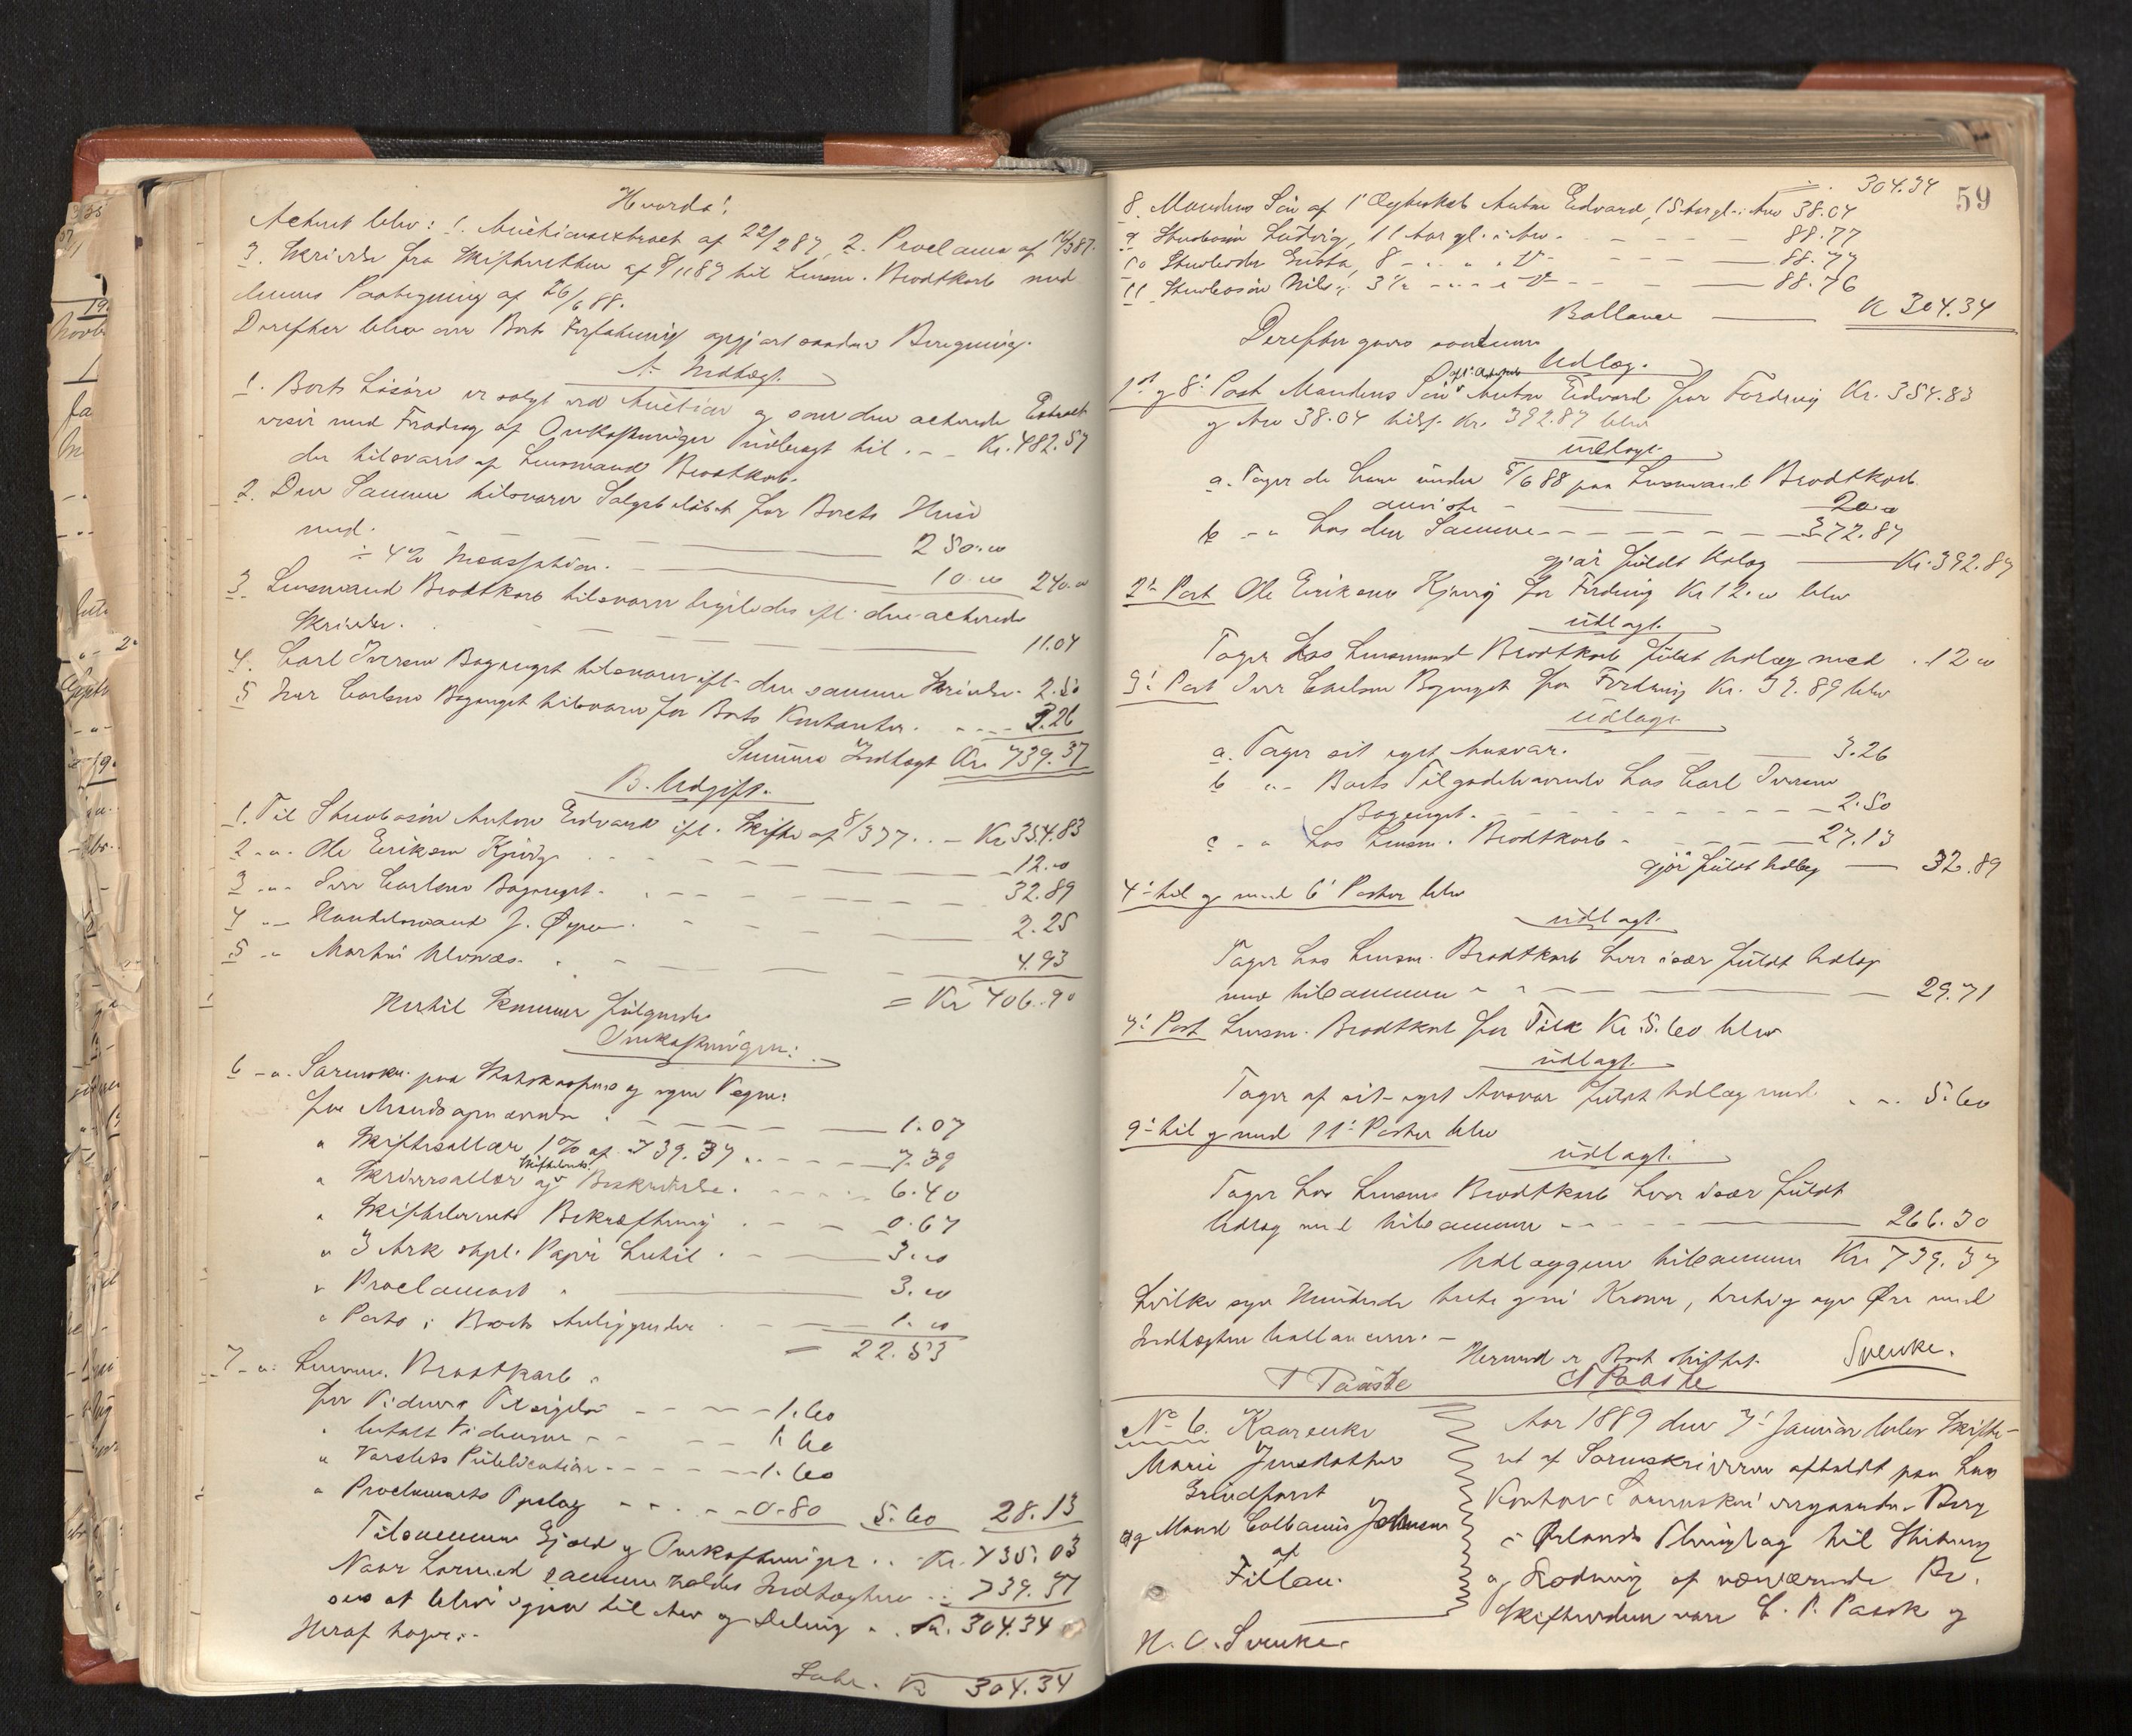 Hvorda!
Acteret blev: 1. Auctionsextract af 22/2 87, 2. Proclama af 14/3 87.
3. Skrivelse fra Skifteretten af 8/11 87 til Lensm. Brodtkorb med
dennes Paategning af 26/6 88.
Derefter blev over Boets Forfatning opgjort saadan Beregning.
A. Indtægt.
1. Boets Løsøre er solgt ved Auction og som den acterede Extract
viser med Fradrag af Omkostninger udbragt til . - - Kr. 482.57
der tilsvares af Lensmand Brodtkorb.
2. Den Samme tilsvarer Salgsbeløbet for Boets Huse
med. 250.00
÷ 4% Incassation. 10.00 240.00
3. Lensmand Brodtkorb tilsvarer ligeledes ifl. den acterede
Skrivelse. 11.04
4. Carl Iversen Bogenget tilsvarer ifl. den samme Skrivelse. 2.50
5 Iver Carlsen Bogenget tilsvarer for Boets Kontanter. 3.26
Summa Indtægt Kr. 739.37
B. Udgift.
1. Til Stervbosøn Anton Edvard ifl. Skifte af 8/3 77. . - Kr 354.83
2 - " - Ole Eriksen Kjørvig 12.00
3 - " - Iver Carlsen Bogenget. 32.89
4 " - Handelsmand J. Øyen. 2.25
5 - " Martin Ulvnæs. 4.93
= Kr 406.90
Hertil kommer følgende
Omkostninger:
6 - " - Sorenskr. paa Statskassens og egne Vegne:
for
" Skiftesallær 1% af 739.37 7.39
1.07
" Skriversallær af Skifterets Beskrivelse. 6.40
" Skifterettens Bekræftning 0.67
" 3 Ark stpl. Papir hertil. 3.00
" Proclamaet 3.00
" Porto i Boets Anliggender 1.00
= 22.53
7 - " : Lensm. Brodtkorb:
for Vidners Tilsigelse 1.60
" betalt Vidnerne 1.60
" Varslets Publication 1.60
" Proclamaets Opslag 0.80 5.60 28.13
Tilsammen Gjæld og Omkostninger . . Kr. 435.03
Naar hermed sammenholdes Indtægten 739.37
sees at blive igjen til Arv og Deling . . Kr. 304.34
Heraf tager: -
Lateris. Kr 304.34
59
304.34
8. Mandens Søn af 1' Ægteskab Anton Edvard, 15 Aar gl. i Arv 38.04
9 Stervbosøn Ludvig, 11 Aar gl. i Arv. 88.77
10 Stervbodtr Gusta, 8 88.77
11. Stervbosøn Nils, 3½ 88.76
Ballance Kr 304.34
Derefter gaves saadanne
Udlæg.
1' og 8' Post Mandens Søn af 1' Ægteskab Anton Edvard for Fordring Kr. 354.83
og Arv 38.04 tils. Kr. 392.87 blev
udlagt.
a. Tager de ham under 5/6 88 paa Lensmand Brodtkorb
anviste 20.00
b - " hos den Samme 372.87
gjør fuldt Udlæg Kr. 392.87
2' Post Ole Eriksen Kjørvig for Fordring Kr 12.00 blev
udlagt.
Tager hos Lensmand Brodtkorb fuldt Udlæg med . 12 00
3' Post Iver Carlsen Bogenget for Fordring Kr. 32.89 blev
udlagt.
a. Tager sit eget Ansvar. 3.26
b " - Boets Tilgodehavende hos Carl Iversen
Bogenget. 2.50
c - " hos Lensm. Brodtkorb 27.13
gjør fuldt Udlæg 32.89
4' til og med 6' Poster blev
udlagt.
Tager hos Lensm. Brodtkorb hver især fuldt Udlæg
med tilsammen 29.71
7' Post Lensm. Brodtkorb for Tilk Kr. 5.60 blev
udlagt.
Tager af sit eget Ansvar fuldt Udlæg med . - . 5.60
9' til og med 11' Poster blev
udlagt.
Tager hos Lensm Brodtkorb hver især fuldt
Udlæg med tilsammen 266.30
Udlæggene tilsammen Kr. 739.37
hvilke syv Hundrede trети og ni Kroner, treti og syv Øre med
Indtægten ballancerer. -
Hermed er Boet sluttet. Svenke.
P Paaske
No 6. Kaarenke
Marie Jensdatter
Grindfaret
og Mand Colbanus Johnsen
af
Fillan.
Aar 1889 den 7' Januar blev Skifte-
ret af Sorenskriveren afholdt paa hans
Kontor i Sorenskrivergaarden Berg
i Ørlands Thinglag til Slutning
og Lodning af nærværende Bo.
Skiftevidner vare C. P. Paask og
N. O. Svenke.